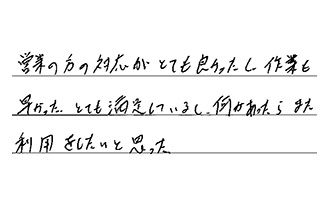 営業の方の対応がとても良かったし、作業も
早かった。とても満足しているし、何かあったらまた
利用をしたいと思った